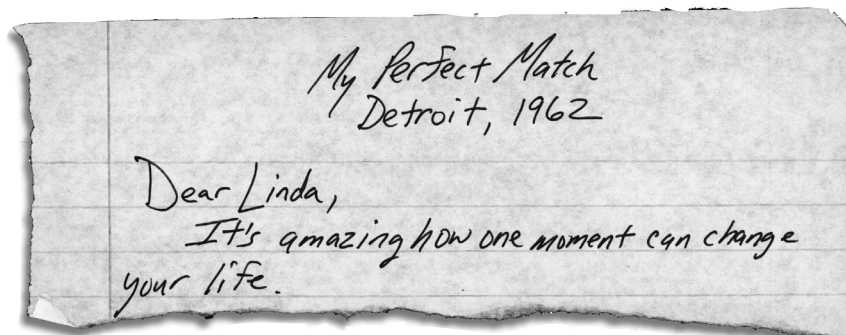 My Perfect Match
Detroit, 1962
Dear Linda,
It's amazing how one moment can change
your life.